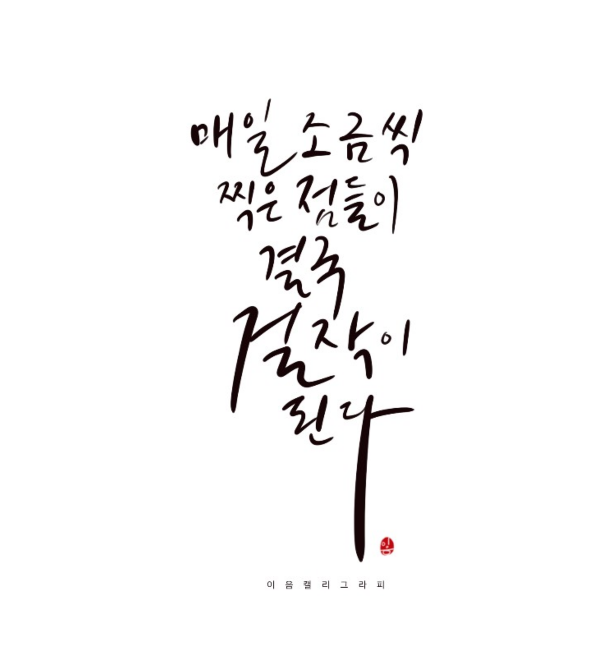 매일 조금씩
찍은 점들이
결국
걸작이
된다
이음캘리그라피